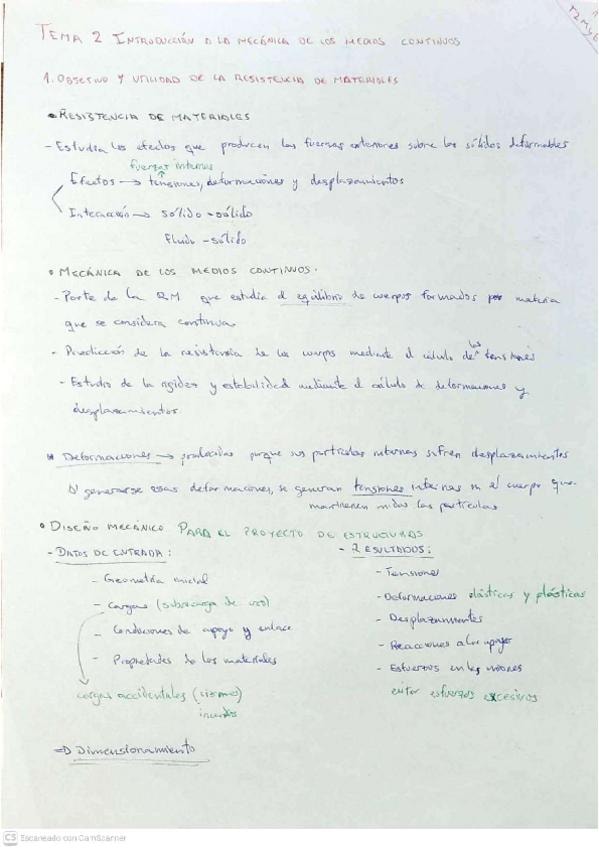 T2 MyE
TEMA 2 INTRODUCCIÓN A LA MECÁNICA DE LOS MEDIOS CONTINUOS
1. OBJETIVO Y UTILIDAD DE LA RESISTENCIA DE MATERIALES
• RESISTENCIA DE MATERIALES
- Estudia los efectos que producen las fuerzas exteriores sobre los sólidos deformables
fuerzas internas
Efectos → tensiones, deformaciones y desplazamientos
Interacción → sólido - sólido
Fluido - sólido
• MECÁNICA DE LOS MEDIOS CONTINUOS.
- Parte de la RM que estudia el equilibrio de cuerpos formados por materia
que se considera continua
- Predicción de la resistencia de los cuerpos mediante el cálculo de las tensiones
- Estudio de la rigidez y estabilidad mediante el cálculo de deformaciones y
desplazamientos.
* Deformaciones → producidas porque sus partículas internas sufren desplazamientos
Al generarse esas deformaciones, se generan tensiones internas en el cuerpo que
mantienen unidas las partículas
• DISEÑO MECÁNICO PARA EL PROYECTO DE ESTRUCTURAS
- DATOS DE ENTRADA:
- Geometría inicial
- Cargas (sobrecarga de uso)
- Condiciones de apoyo y enlace
- Propiedades de los materiales
cargas accidentales (sismo)
incendios
- RESULTADOS:
- Tensiones
- Deformaciones elásticas y plásticas
- Desplazamientos
- Reacciones a los apoyos
- Esfuerzos en las uniones
evitar esfuerzos excesivos
⇒ Dimensionamiento
CS Escaneado con CamScanner